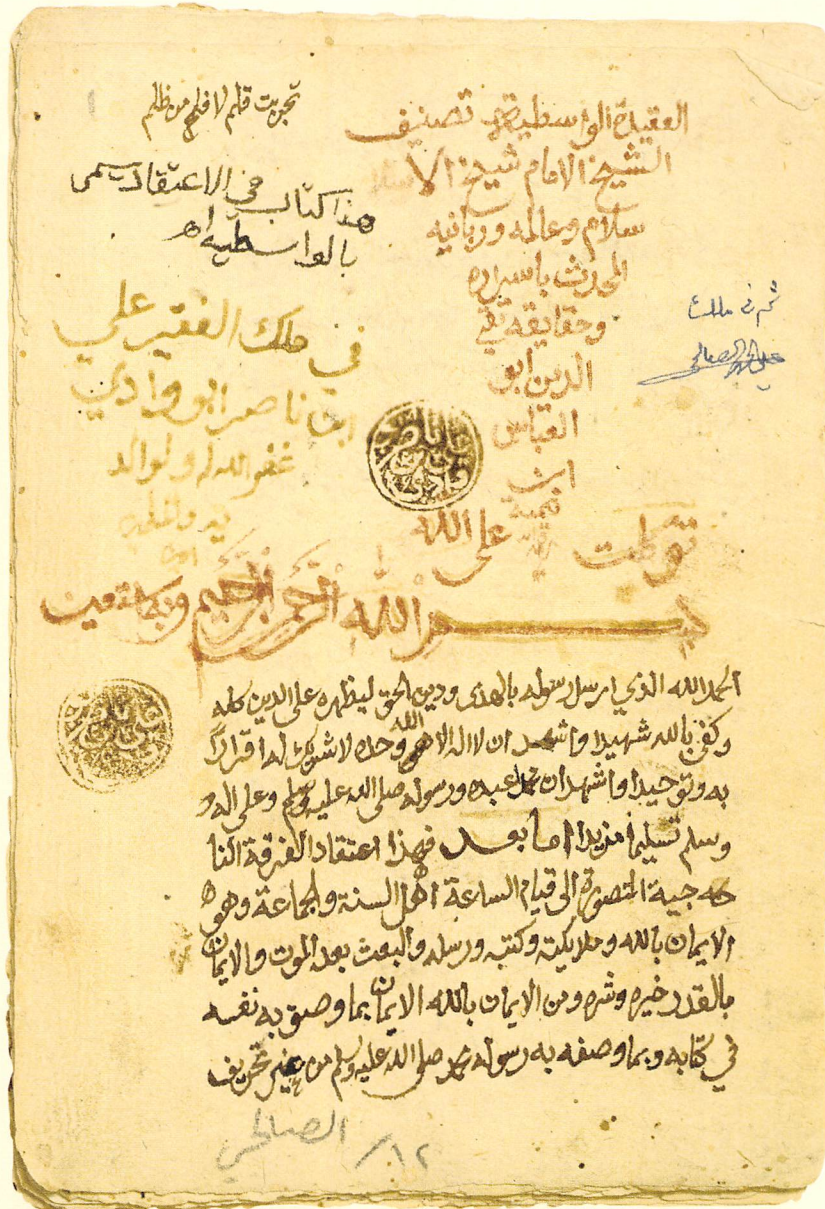 العقيدة الواسطية تصنيف
الشيخ الامام شيخ الا
سلام وعالمه وربانيه
المحدث باسراره
وحقايقه تقي
الدين ابو
العباس
ابن
تيمية
تجربت قلم لا فلح من ظلم
هذا كتاب في الاعتقاد يسمى
بالواسطيه اه
في ملك الفقير علي
ابن ناصر ابو وادي
غفر الله له ولوالد
يه
امين
ثم في ملك
علي الصالحي
توكلت على الله
بسم الله الرحمن الرحيم وبه نستعين
الحمد لله الذي ارسل رسوله بالهدى ودين الحق ليظهره على الدين كله
وكفى بالله شهيدا واشهد ان لا اله الا الله وحده لا شريك له اقرارا
به وتوحيدا واشهد ان محمد عبده ورسوله صلى الله عليه وسلم وعلى اله و
وسلم تسليما مزيدا اما بعد فهذا اعتقاد الفرقة النا
جية المنصورة الى قيام الساعة اهل السنة والجماعة وهو
الايمان بالله وملايكته وكتبه ورسله والبعث بعد الموت والايمان
بالقدر خيره وشره ومن الايمان بالله الايمان بما وصف به نفسه
في كتابه وبما وصفه به رسوله محمد صلى الله عليه وسلم من غير تحريف
١٢/ الصالحي